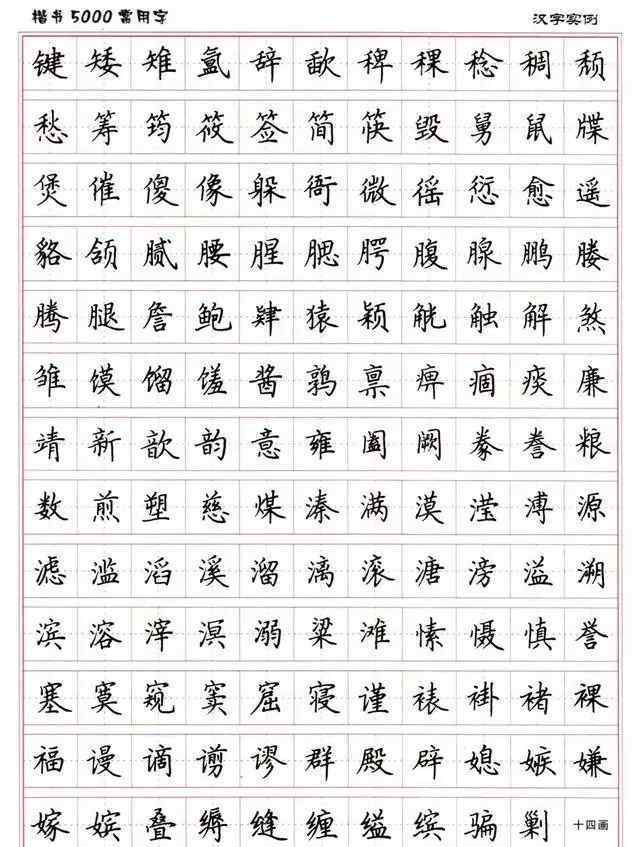 楷书5000常用字 汉字实例
键矮雉氲辞歃稗稞稔稠颓
愁筹筠筱签简筷毁舅鼠牒
煲催傻像躲衙微徭愆愈遥
貉颌腻腰腥腮腭腹腺鹏媵
腾腿詹鲍肆猿颖觥触解煞
雏馍馏馐酱鹑禀痹痼痰廉
靖新歆韵意雍阖阙豢誊粮
数煎塑慈煤溱满漠滢溥源
滤滥滔溪溜漓滚溏滂溢溯
滨溶滓溟溺粱滩愫慑慎誉
塞寞窥窦窟寝谨裱褂褚裸
福谩谪谫谬群殿辟媳嫉嫌
嫁嫔叠缛缝缠缢缤骟剿十四画